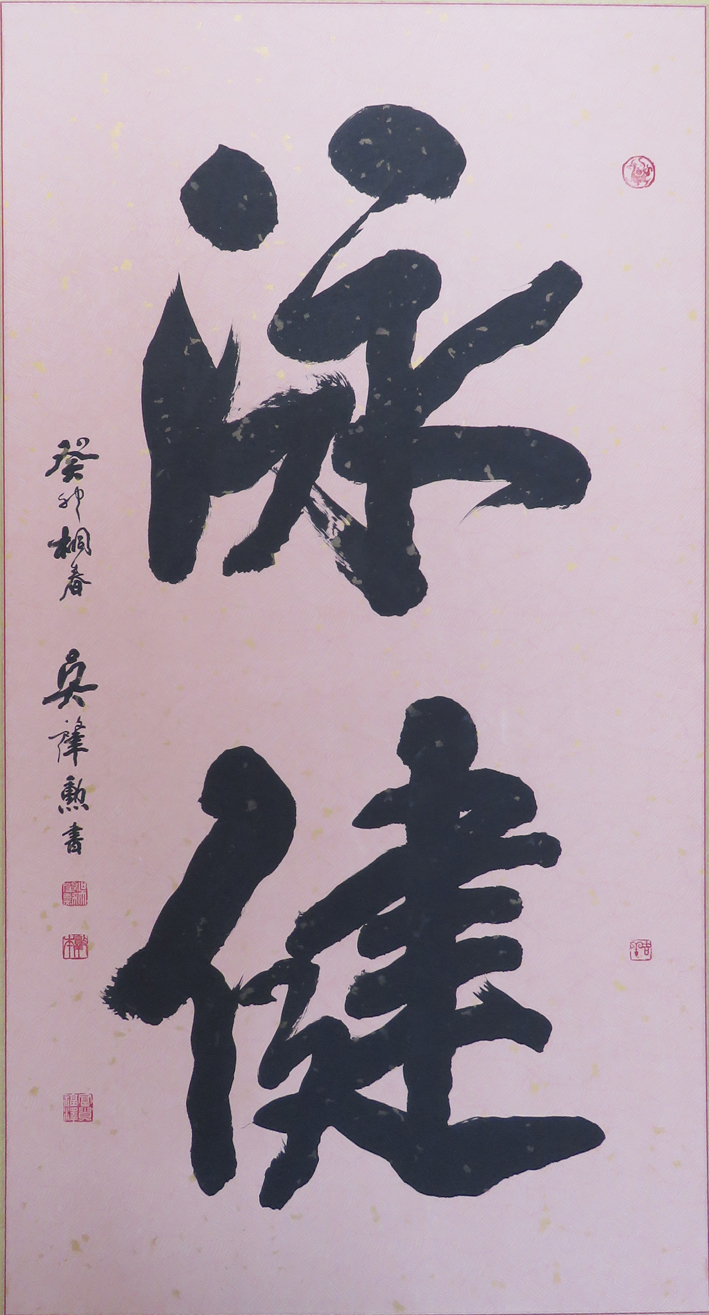 泳健
癸卯桐春 吳肇勳書